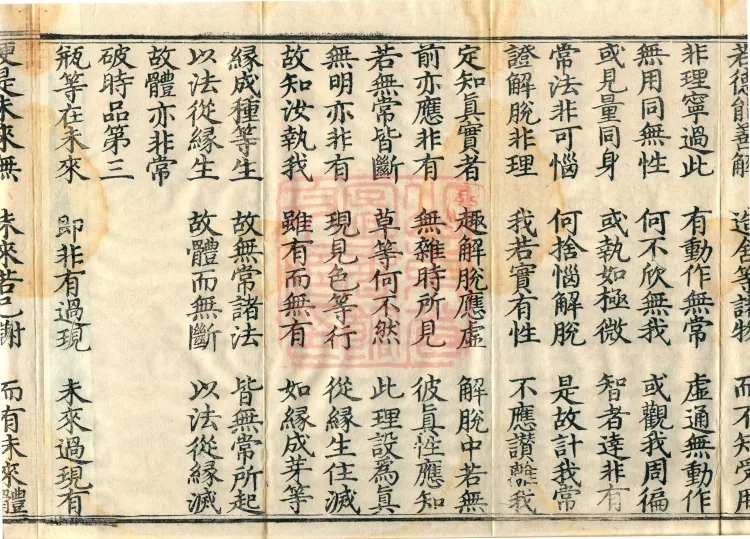 若德能善解　造舍等諸物　而不知受用
非理寧過此　有動作無常　虛通無動作
無用同無性　何不欣無我　或觀我周徧
或見量同身　或執如極微　智者達非有
常法非可惱　何捨惱解脫　是故計我常
證解脫非理　我若實有性　不應讚離我
定知眞實者　趣解脫應虛　解脫中若無
前亦應非有　無雜時所見　彼眞性應知
若無常皆斷　草等何不然　此理設為眞
無明亦非有　現見色等行　從緣生住滅
故知汝執我　雖有而無有　如緣成芽等
緣成種等生　故無常諸法　皆無常所起
以法從緣生　故體而無斷　以法從緣滅
故體亦非常
破時品第三
瓶等在未來　即非有過現　未來過現有
便是未來無　未來若已謝　而有未來體